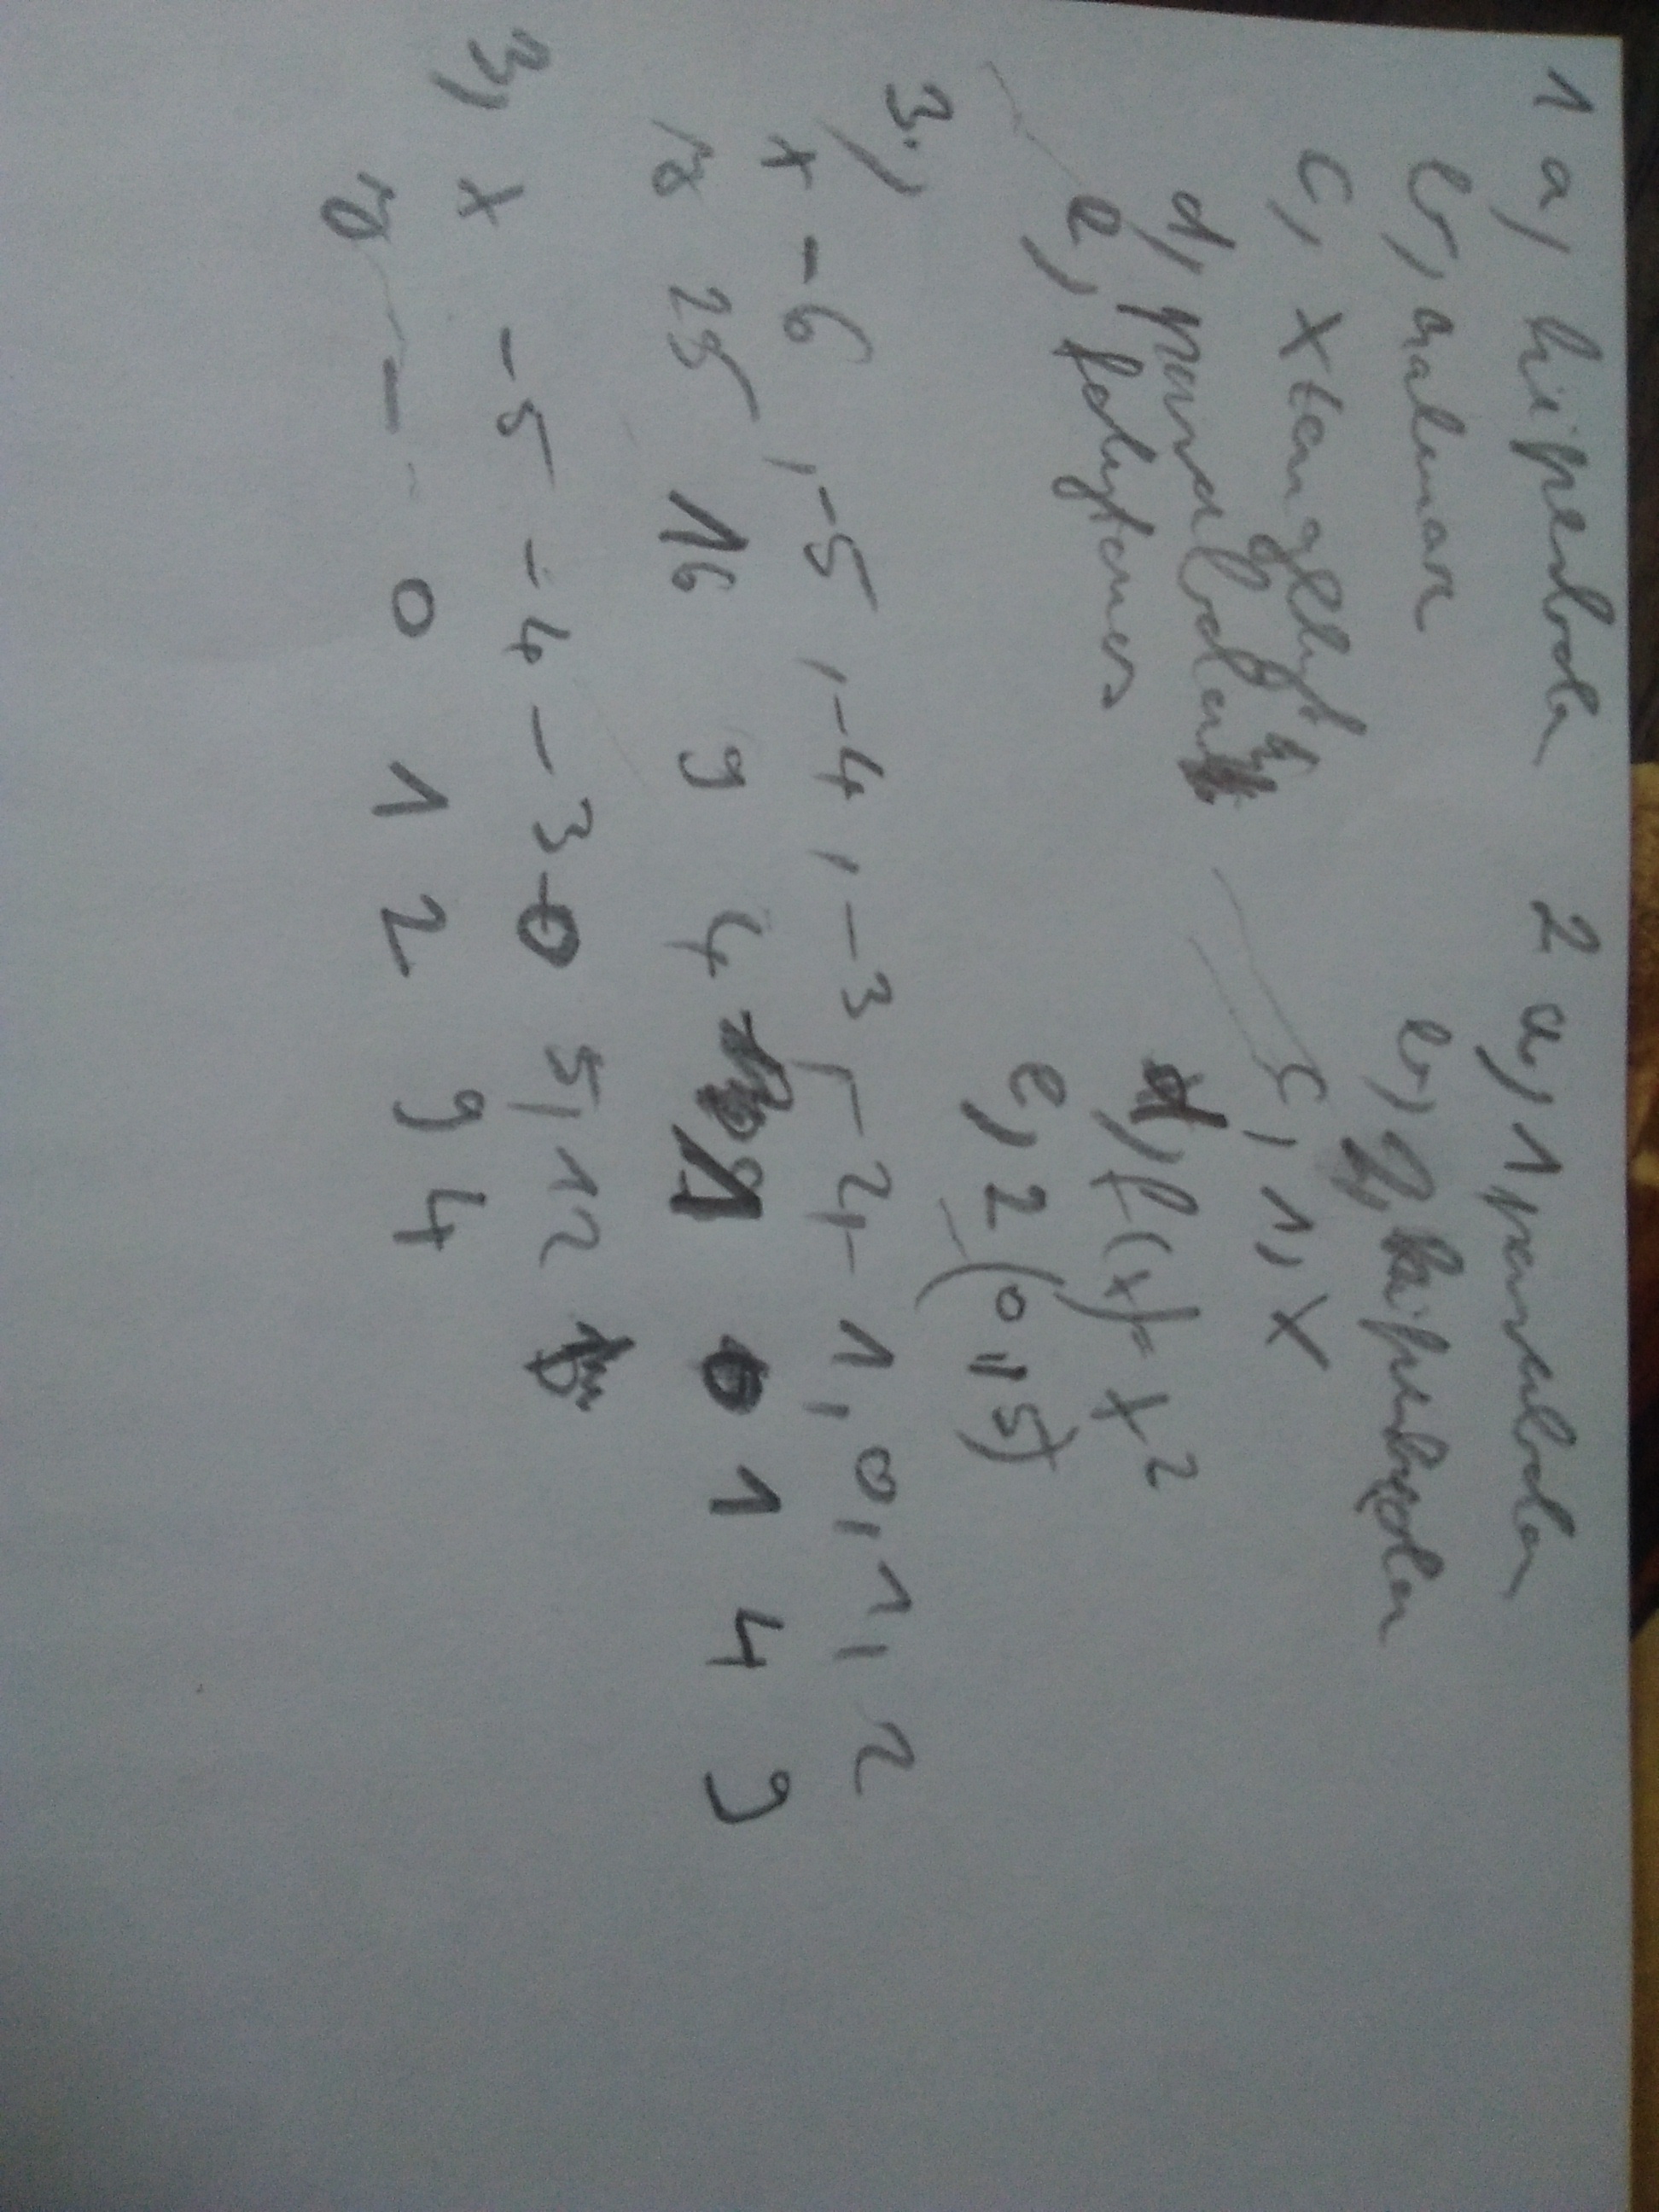 1 a, hiperbola 2 a, 1 parabola
b, b, hiperbola
c, x tengelyt c, 1, x
d, parabola d, f(x)= x²
e, folytonos e, 2 (0,5)
3.,
x -6, -5, -4, -3, -2, -1, 0, 1, 2
y 25 16 9 4 1 0 1 4 9
3, x -5 -4 -3 0 5, 12
y - 0 1 2 9 4